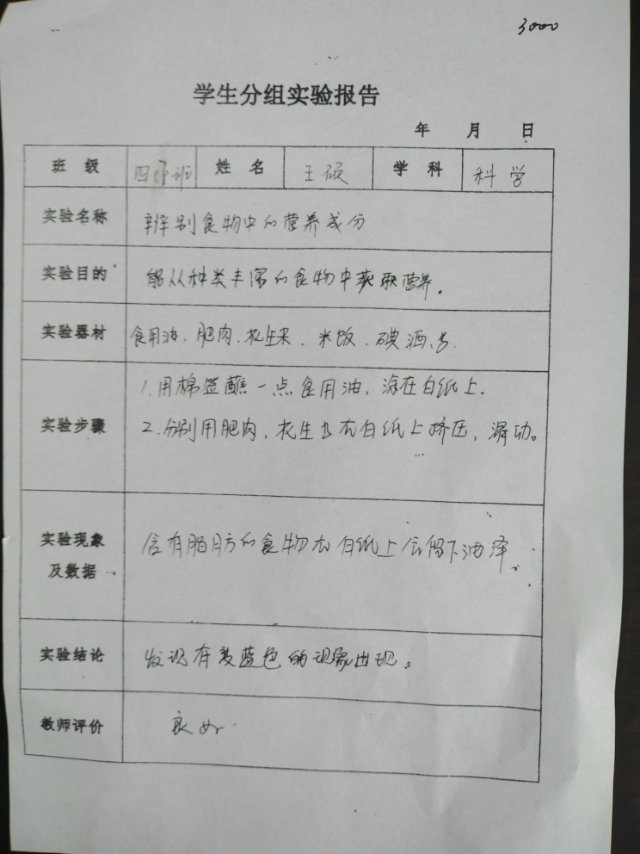 3000
学生分组实验报告
年 月 日
班 级 四 班 姓 名 王硕 学 科 科学
实验名称 辨别食物中的营养成分
实验目的 能从种类丰富的食物中获取营养。
实验器材 食用油、肥肉、花生米、米饭、碘酒、
实验步骤 1.用棉签蘸一点食用油,涂在白纸上.
2.分别用肥肉,花生 在白纸上挤压,滑动。
实验现象 含有脂肪的食物在白纸上会留下油泽.
及数据
实验结论 发现有变蓝色的现象出现。
教师评价 良好.